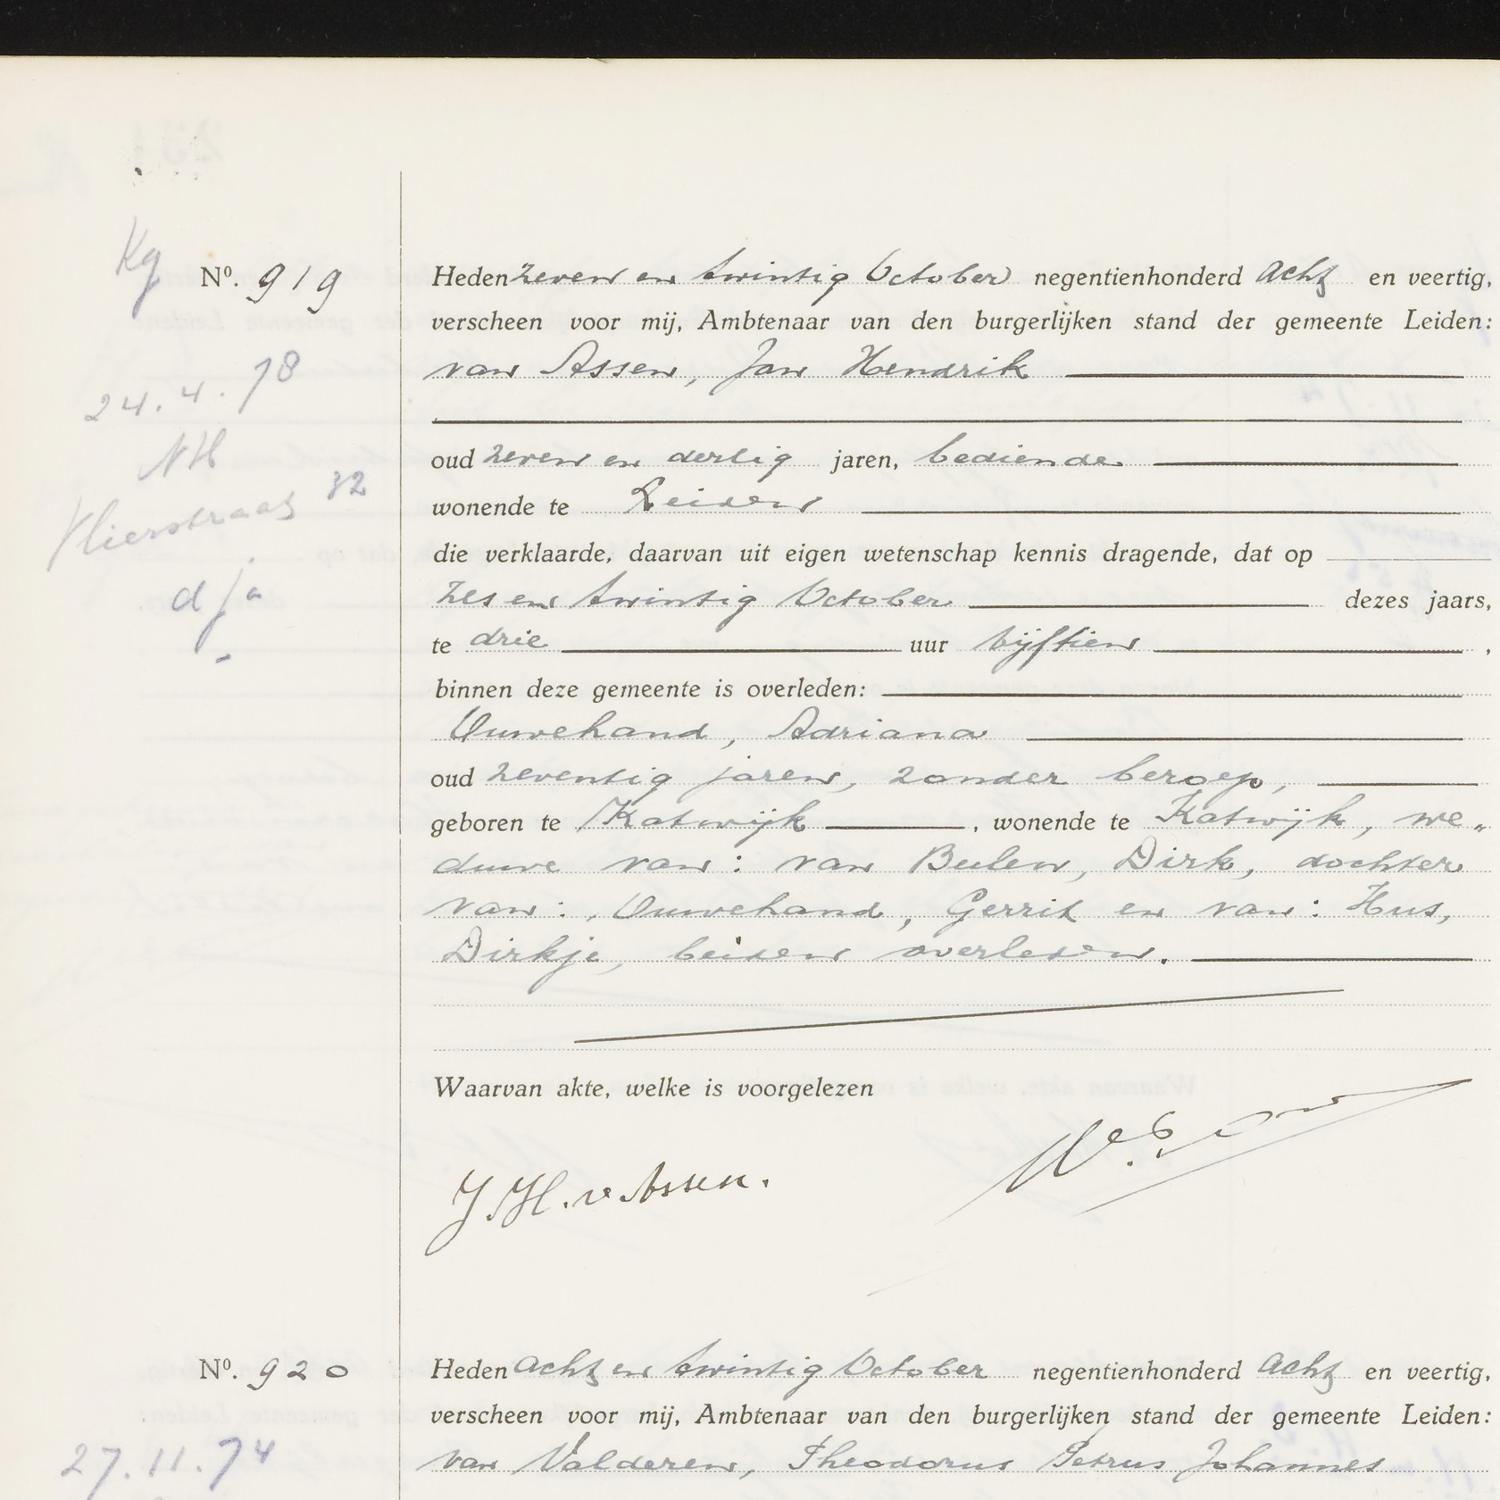 Kg
Nº. 919
24.4.78
NH
Vlierstraat 32
d ja
Heden zeven en twintig October negentienhonderd acht en veertig,
verscheen voor mij, Ambtenaar van den burgerlijken stand der gemeente Leiden:
van Assen, Jan Hendrik
oud zeven en dertig jaren, bediende
wonende te Leiden
die verklaarde, daarvan uit eigen wetenschap kennis dragende, dat op
zes en twintig October dezes jaars,
te drie uur vijftien .
binnen deze gemeente is overleden:
Ouwehand, Adriana
oud zeventig jaren, zonder beroep,
geboren te Katwijk , wonende te Katwijk, we„
duwe van: van Beelen, Dirk, dochter
van: Ouwehand, Gerrit en van: Hus,
Dirkje, beiden overleden.
Waarvan akte, welke is voorgelezen
J.H. v Assen.
Nº. 920
27.11.74
Heden acht en twintig October negentienhonderd acht en veertig,
verscheen voor mij, Ambtenaar van den burgerlijken stand der gemeente Leiden:
van Valderen, Theodorus Petrus Johannes